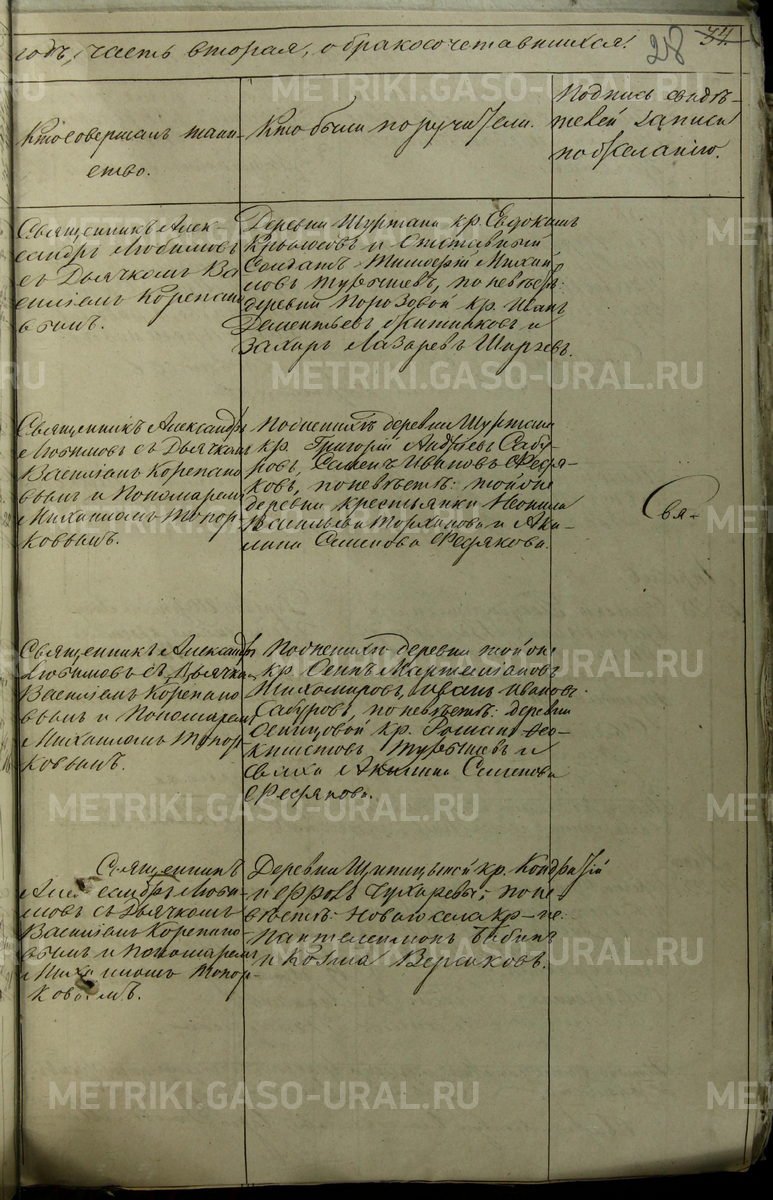 годъ, часть вторая, о бракосочетавшихся.
28
34.
Кто совершалъ таин-
ство.
Кто были поручители.
Подпись свидѣ-
телей записи
по желанію.
Священникъ Алек-
сандръ Любимовъ
съ Дьячкомъ Ва
силіемъ Корепано
вымъ.
Деревни Шуртана кр. Евдокимъ
и Отставной
Солдатъ Тимоѳей Михай
ловъ Турышевъ, по невѣстѣ:
деревни Порозовой кр. Иванъ
Дементьевъ и
Захаръ Лазаревъ
Священникъ Александръ
Любимовъ съ Дьячкомъ
Василіемъ Корепано
вымъ и Пономаремъ
Михаиломъ Топор-
ковымъ.
По женихѣ деревни Шуртана
кр. Григорій Андреевъ Сабу
ровъ, Семенъ Ивановъ Ѳефи-
ковъ, по невѣстѣ: той же
деревни крестьянки
Васильева и Аку-
лина Семенова
Свя-
Священникъ Александръ
Любимовъ съ Дьячко
Василіемъ Корепано
вымъ и Пономаремъ
Михаиломъ Топор-
ковымъ.
По женихѣ деревни той же
кр. Осипъ
Тихомировъ, Иванъ Ивановъ
Сабуровъ, по невѣстѣ: деревни
кр. Романъ Ѳео-
ктистовъ Турышевъ и
сваха Акилина Семенова
Священникъ
Александръ Люби
мовъ съ Дьячкомъ
Василіемъ Корепано
вымъ и Пономаремъ
Михаиломъ Топор-
ковымъ.
Деревни Шипицыной кр. Кондратій
и Фролъ Чухаревы; по не-
вѣстѣ: Новаго села кр-не:
Пантелеимонъ Бабинъ
и Козма
METRIKI.GASO-URAL.RU